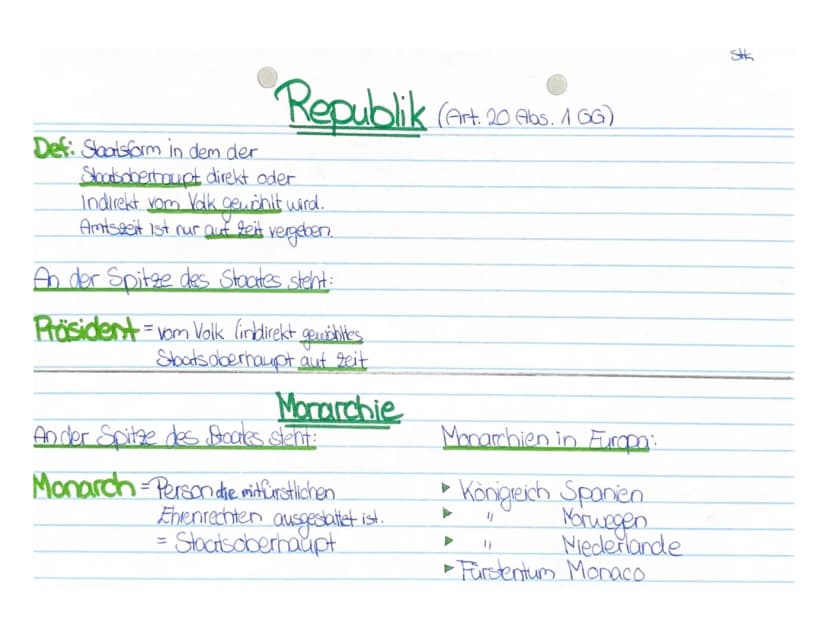 Stk
Republik (Art. 20 Abs. 1 GG)
Def: Staatsform in dem der
Staatsoberhaupt direkt oder
Indirekt vom Volk gewählt wird.
Amtszeit ist nur auf Zeit vergeben.
An der Spitze des Staates steht:
Präsident = vom Volk (indirekt gewähltes
Staatsoberhaupt auf Zeit
Monarchie
An der Spitze des Staates steht:
Monarch = Person die mit fürstlichen
Ehrenrechten ausgestattet ist.
= Staatsoberhaupt
Monarchien in Europa:
▸ Königreich Spanien
▸ " Norwegen
▸ " Niederlande
▸ Fürstentum Monaco